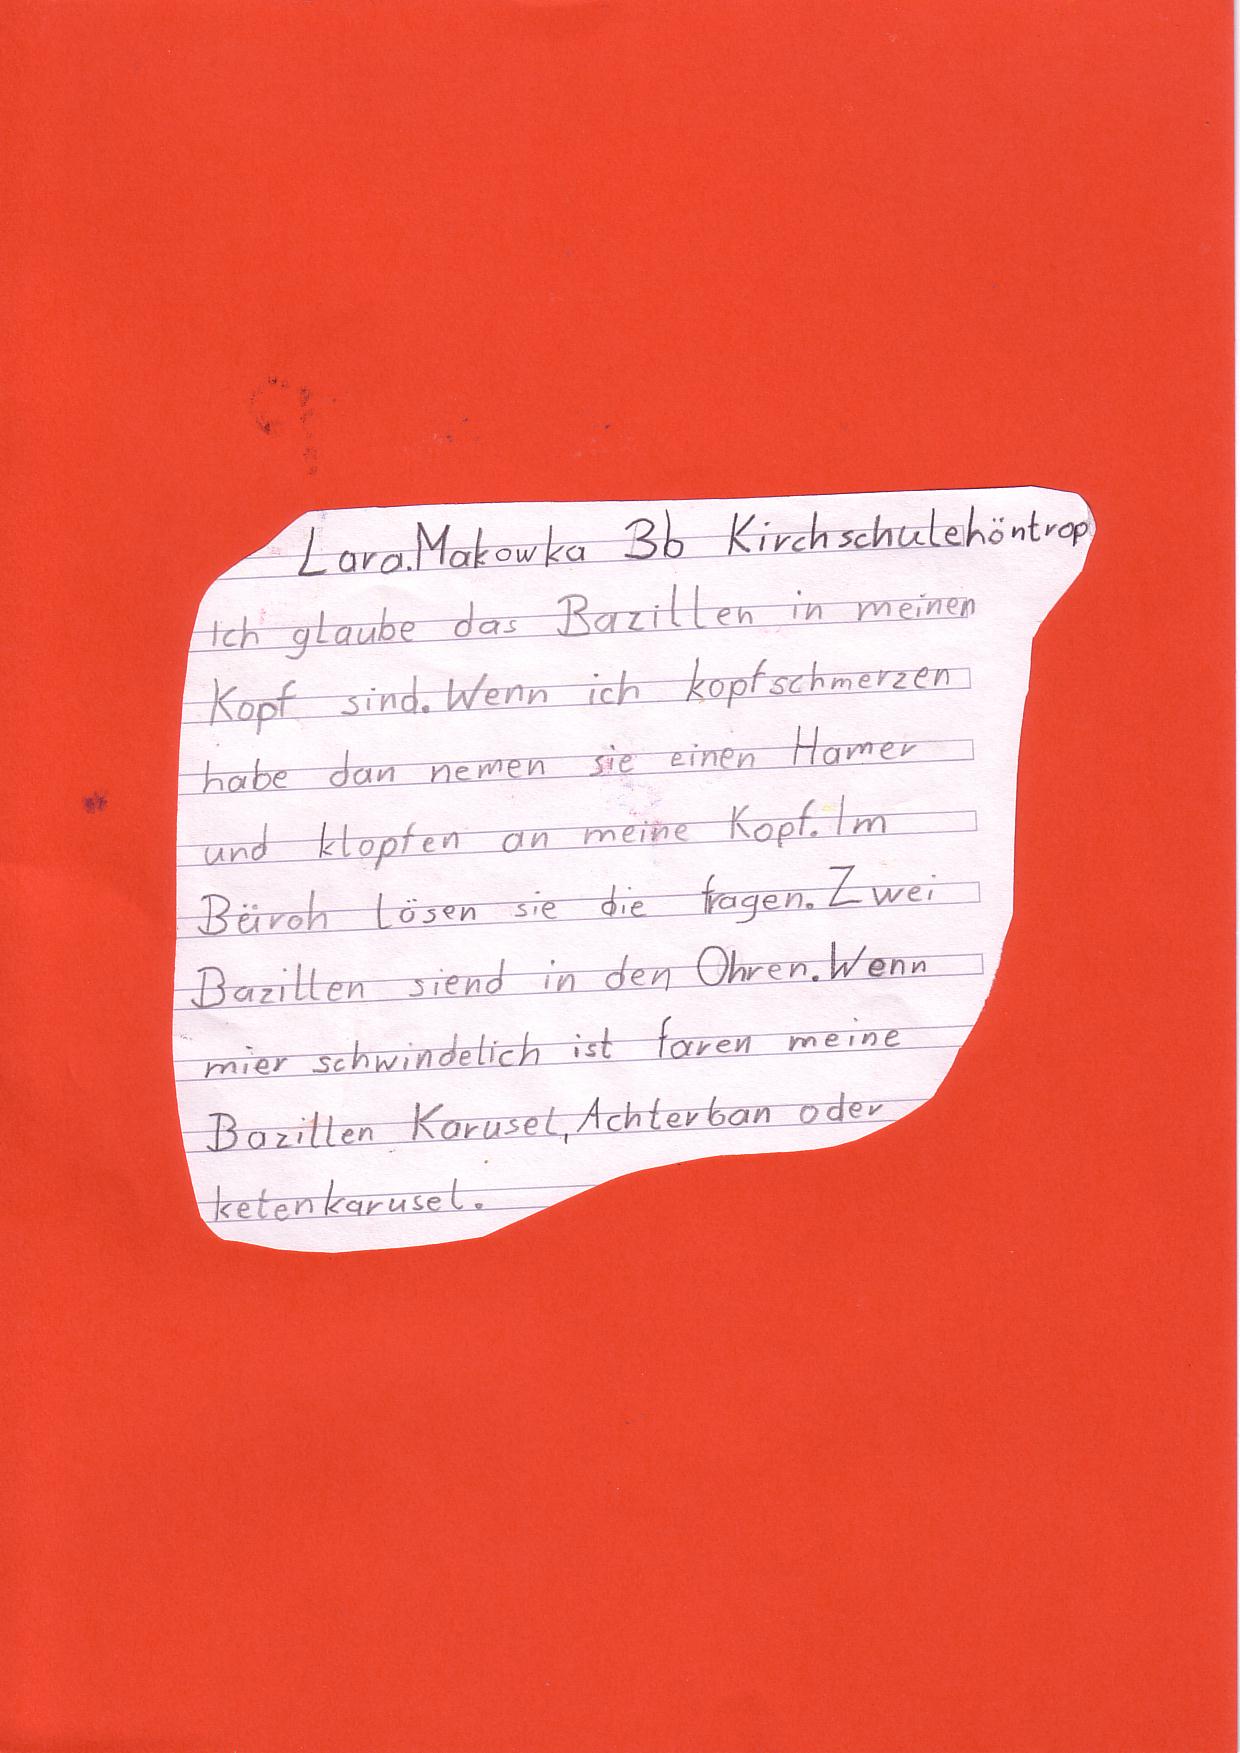 Lara.Makowka 3b Kirchschulehöntrop
Ich glaube das Bazillen in meinen
Kopf sind. Wenn ich kopfschmerzen
habe dan nemen sie einen Hamer
und klopfen an meine Kopf. Im
Büroh lösen sie die fragen. Zwei
Bazillen siend in den Ohren. Wenn
mier schwindelich ist faren meine
Bazillen Karusel, Achterban oder
ketenkarusel.